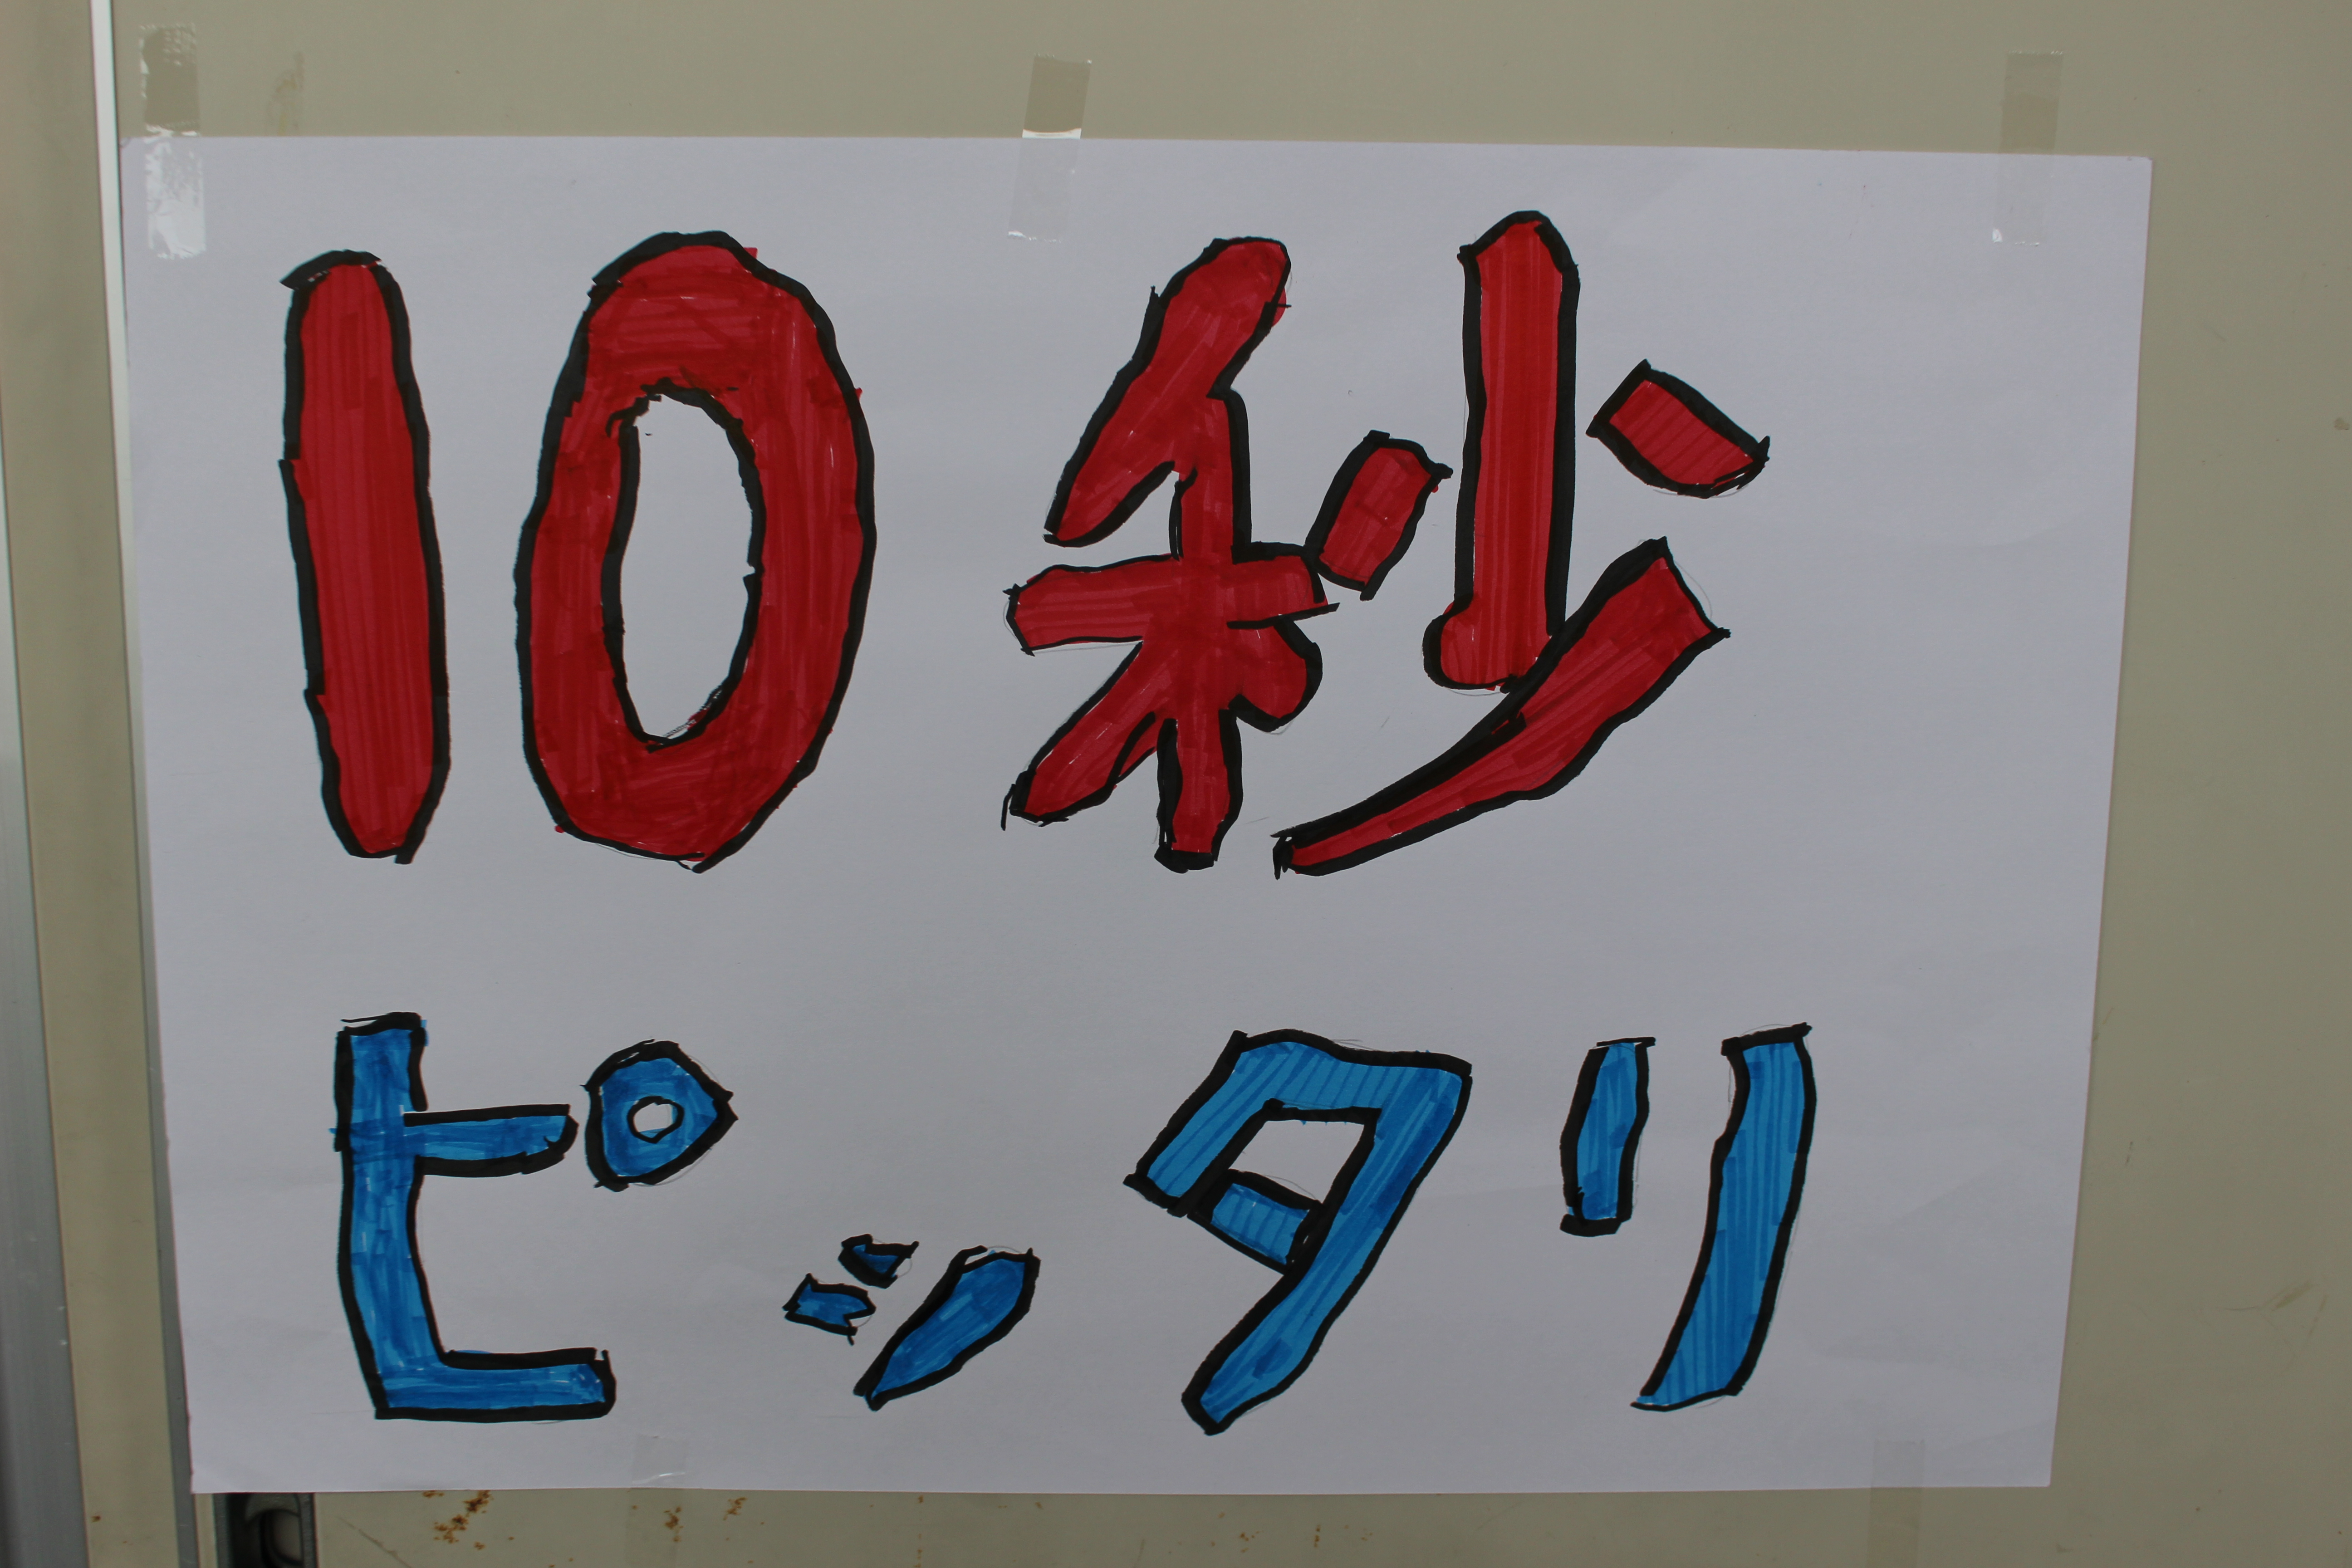 10秒
ピッタリ